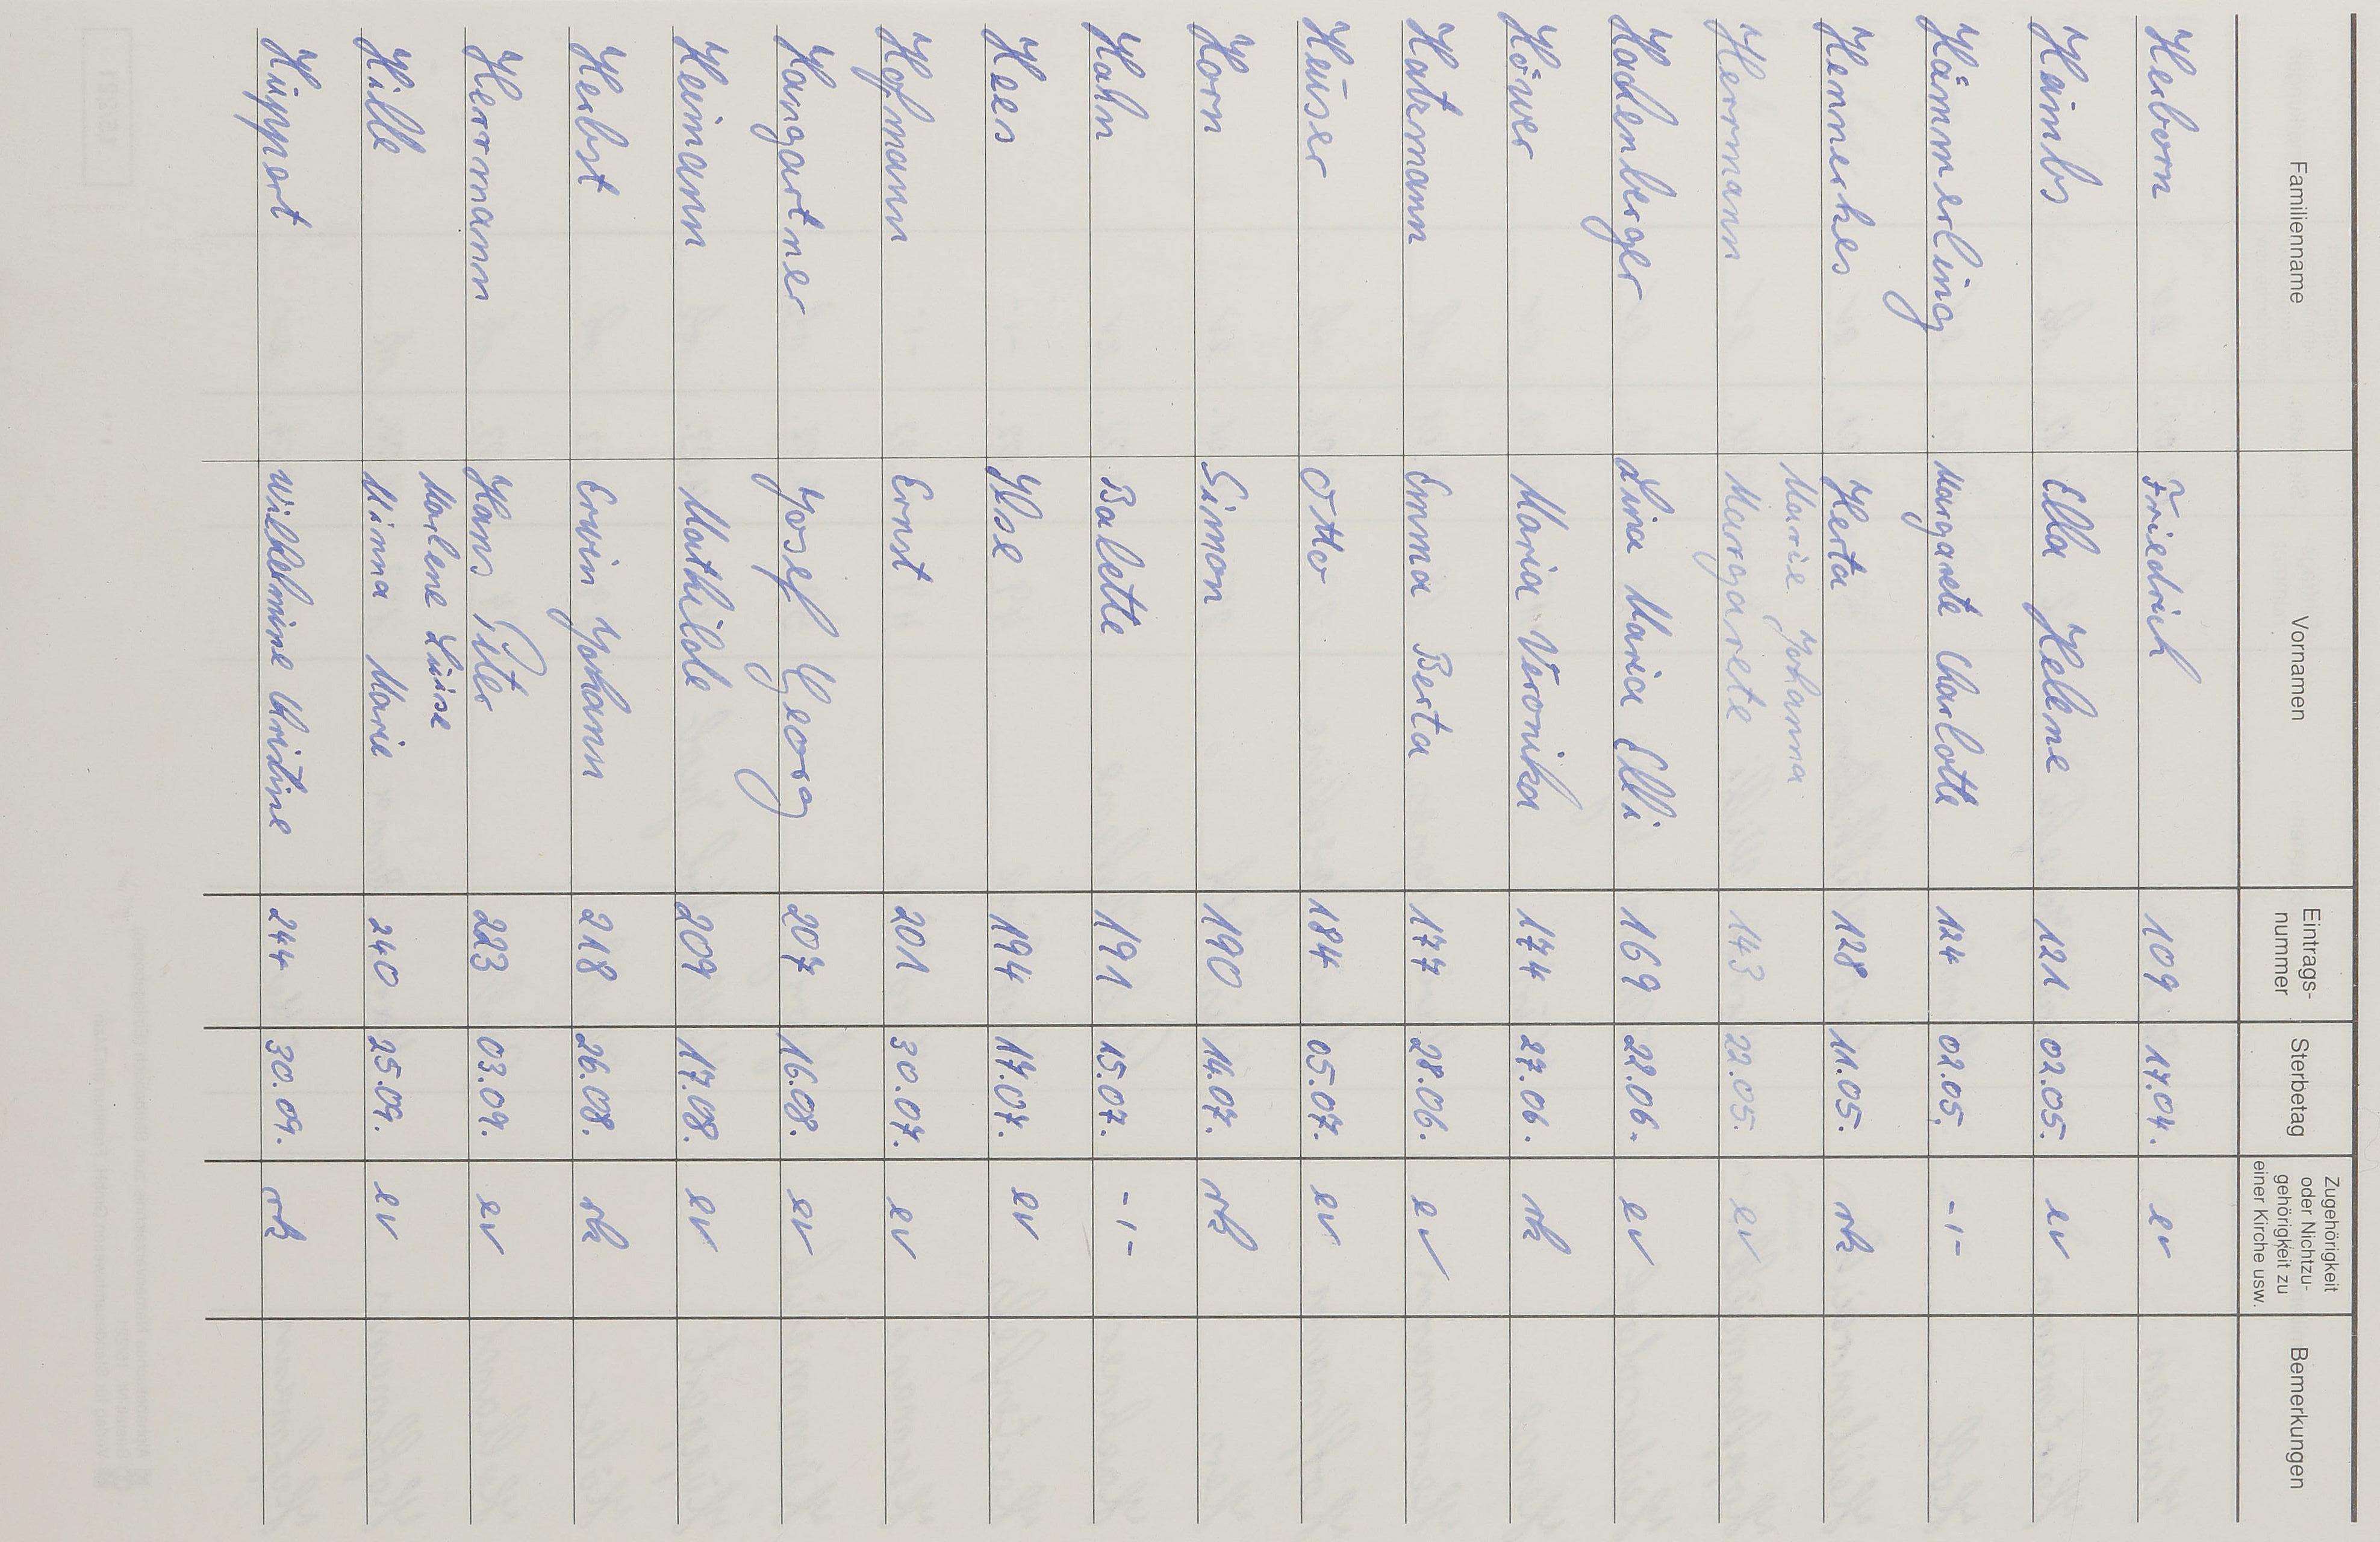 Familienname Vornamen Eintrags-nummer Sterbetag Zugehörigkeit oder Nichtzu-gehörigkeit zu einer Kirche usw. Bemerkungen
Herborn Friedrich 109 17.04. ev
Haimbs Ella Helene 121 02.05. ev
Hämmerling Margarete Charlotte 124 02.05. -,-
Hennerkes Herta 128 11.05. rk
Marie Johanna
Herrmann Margarete 143 22.05. ev
Hadenberger Lina Maria Elli 169 22.06. ev
Höwer Maria Veronika 174 27.06. rk
Hatzmann Emma Berta 177 28.06. ev
Häuser Otto 184 05.07. ev
Horn Simon 190 14.07. rk
Hahn Babette 191 15.07. -,-
Hees Ilse 194 17.07. ev
Hofmann Ernst 201 30.07. ev
Hangartner Josef Georg 207 16.08. ev
Heimann Mathilde 209 17.08. ev
Herbst Erwin Johann 218 26.08. rk
Herrmann Hans Peter 223 03.09. ev
Marlene Luise
Hille Minna Marie 240 25.09. ev
Hüppert Wilhelmine Christine 244 30.09. rk